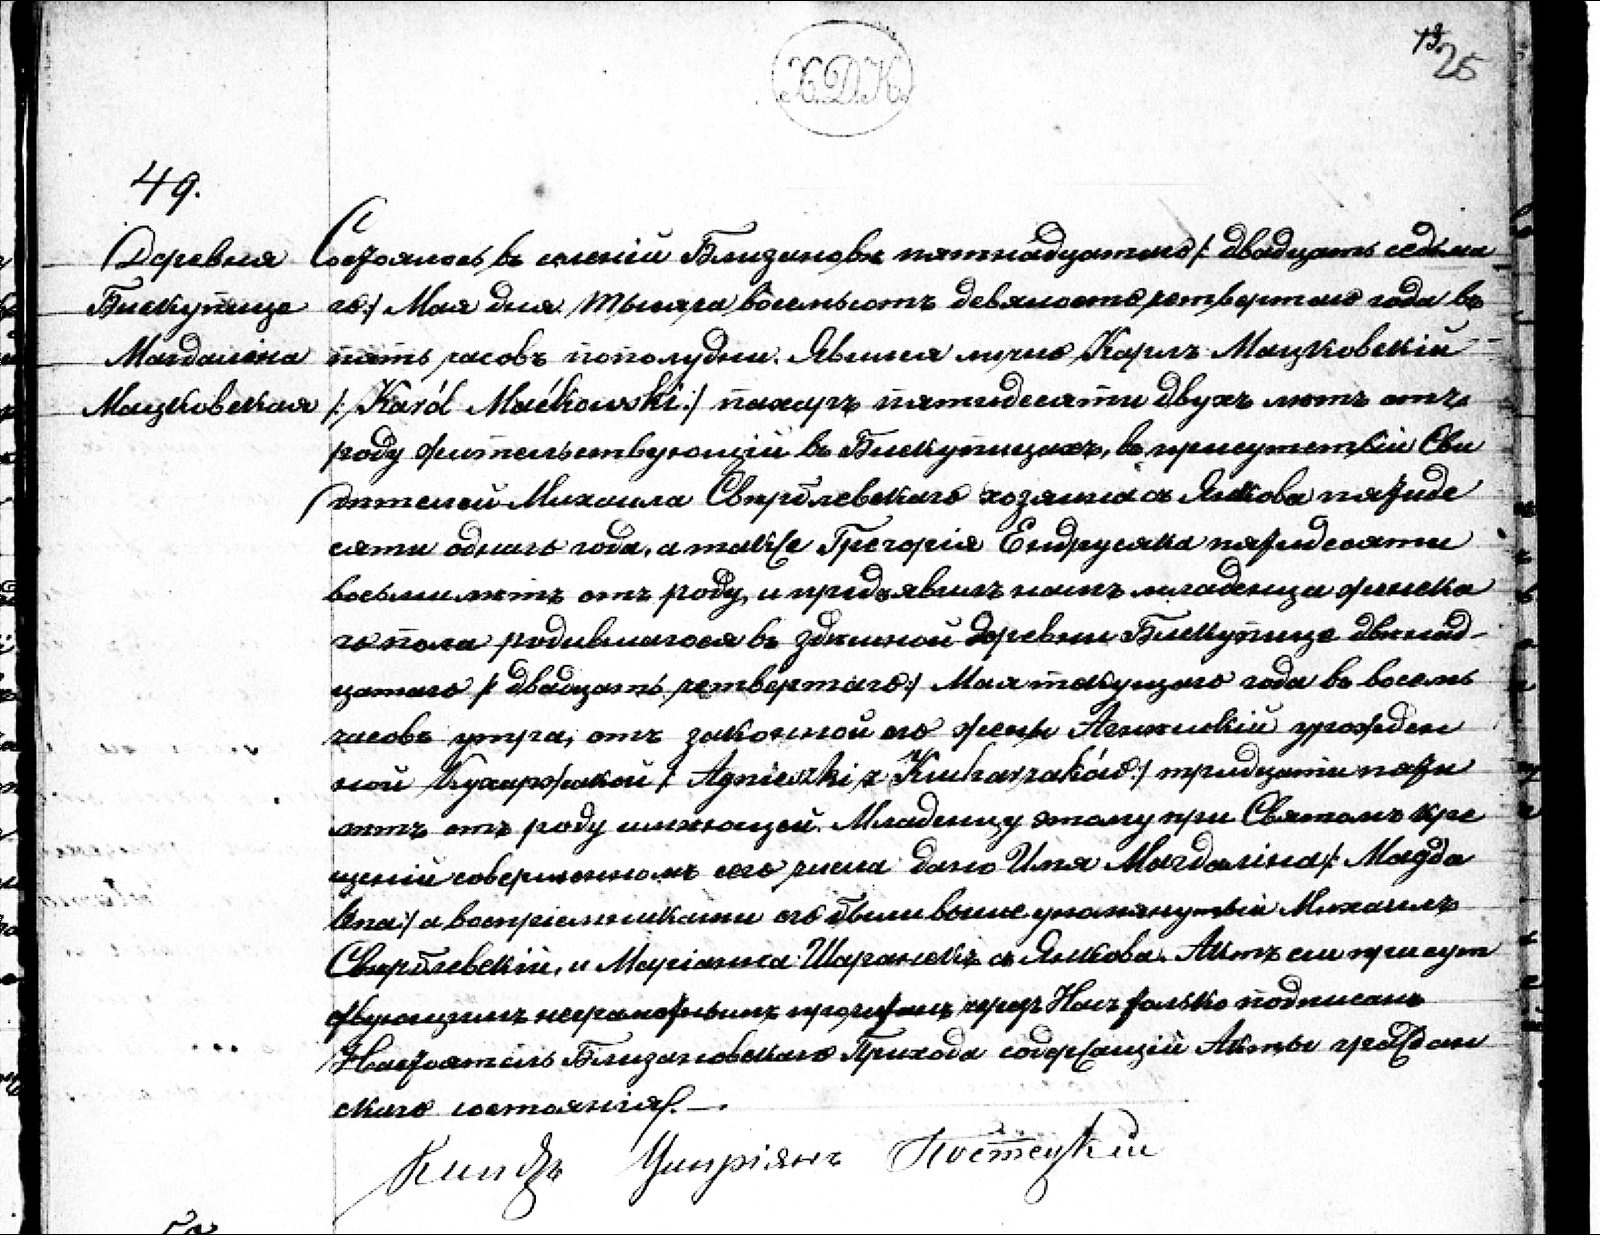 18 25
К.Д.К.
49.
Деревня
Бискупице
Магдалена
Мацковская
Состоялось въ селеніи Близановѣ пятнадцатаго /: двадцать седьма
го:/ Мая дня тысяча восемьсотъ девяносто четвертаго года въ
пять часовъ пополудни. Явился лично Карлъ Мацковскій
/: Karól Maćkowski :/ пахарь пятидесяти двухъ лѣтъ отъ
роду жительствующій въ Бискупицахъ, въ присутствіи Сви
дѣтелей Михаила Свирблевскаго хозяина съ Янкова пятиде
сяти одного года, а также Грегорія Ендрусяка пятидесяти
восьми лѣтъ отъ роду, и предъявилъ намъ младенца женска
го пола родившагося въ здѣшной деревни Бискупице двѣнад-
цатаго /: двадцать четвертаго :/ Мая текущаго года въ восемь
часовъ утра, отъ законной его жены Агнѣшки урожден
ной Кухаржакой /: Agnieszki z Kucharzaków :/ тридцати пяти
лѣтъ отъ роду имѣющей. Младенцу этому при Святомъ Кре
щеніи совершенномъ сего числа дано Имя Магдалена /: Magda
lena :/ а воспріемниками его были выше упомянутый Михаилъ
Свирблевскій, и Маріанна съ Янкова. Актъ сей присут
ствующимъ неграмотнымъ прочитанъ чрезъ Насъ только подписанъ
Настоятель Близановскаго Прихода содержащій Акты граждан
скаго состоянія. —
Ксендзъ Ципріянъ